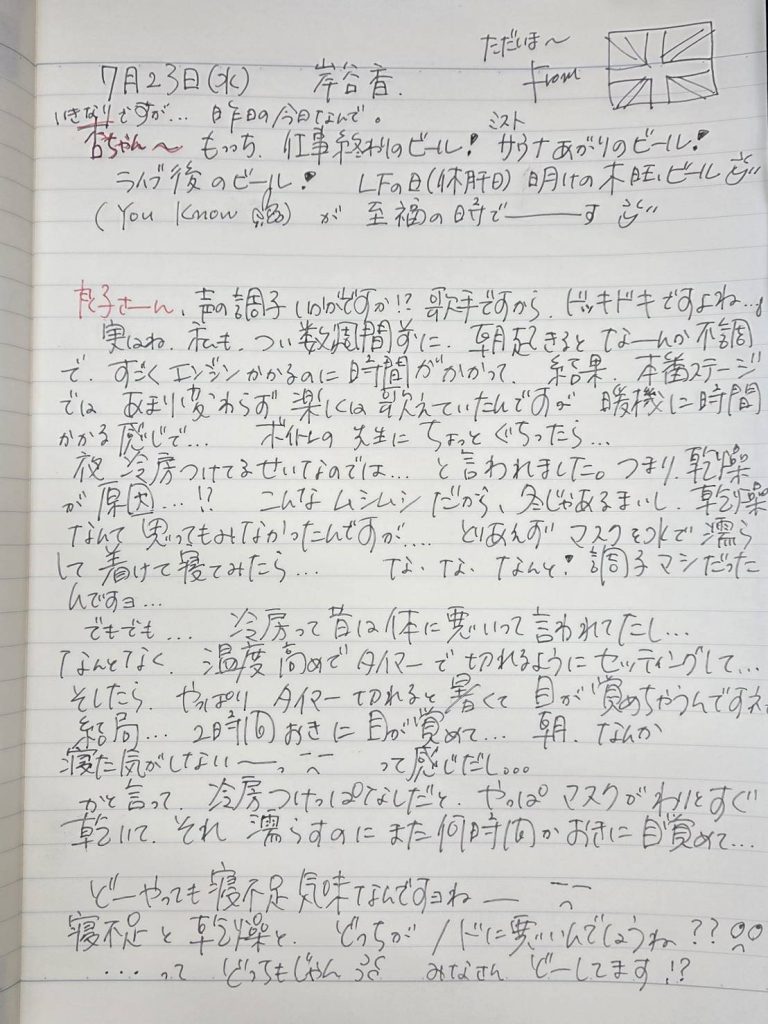 ただいま〜
7月23日(水) 岸谷香.
from
いきなりですが… 昨日の今日なんで。
杏ちゃん〜 もっち、仕事終わりのビール! ミストサウナあがりのビール!
ライブ後のビール! LFの日(休肝日)明けの木旺ビール
(You Know ) が 至福の時で———す
た子さーん、声の調子いかがですか!? 歌手ですから、ドッキドキですよね…。
実はね、私も、つい数週間前に、朝起きると なーんか不調
で、すごくエンジンかかるのに時間がかかって、結果、本番ステージ
では あまり変わらず 楽しくは歌えていたんですが 暖機に時間
かかる感じで… ボイトレの先生に ちょっとぐちったら…
夜、冷房つけてるせいなのでは… と言われました。つまり、乾燥
が原因…!? こんなムシムシだから、冬じゃあるまいし、乾燥
なんて 思ってもみなかったんですが…. とりあえず マスクを水で濡ら
して 着けて寝てみたら… な、な、なんと! 調子マシだった
んですョ…
でもでも… 冷房って昔は体に悪いって言われてたし…
なんとなく、温度高めでタイマーで切れるようにセッティングして…
そしたら、やっぱり タイマー切れると暑くて 目が覚めちゃうんですネ。
結局… 2時間おきに目が覚めて… 朝、なんか
寝た気がしないー って感じだし…
かと言って、冷房つけっぱなしだと、やっぱ マスクがわりとすぐ
乾いて、それ 濡らすのにまた何時間かおきに目覚めて…
どーやっても寝不足気味なんですョね—
寝不足と乾燥と、どっちがノドに悪いんでしょうね??
…って どっちもじゃん みなさん どーしてます!?